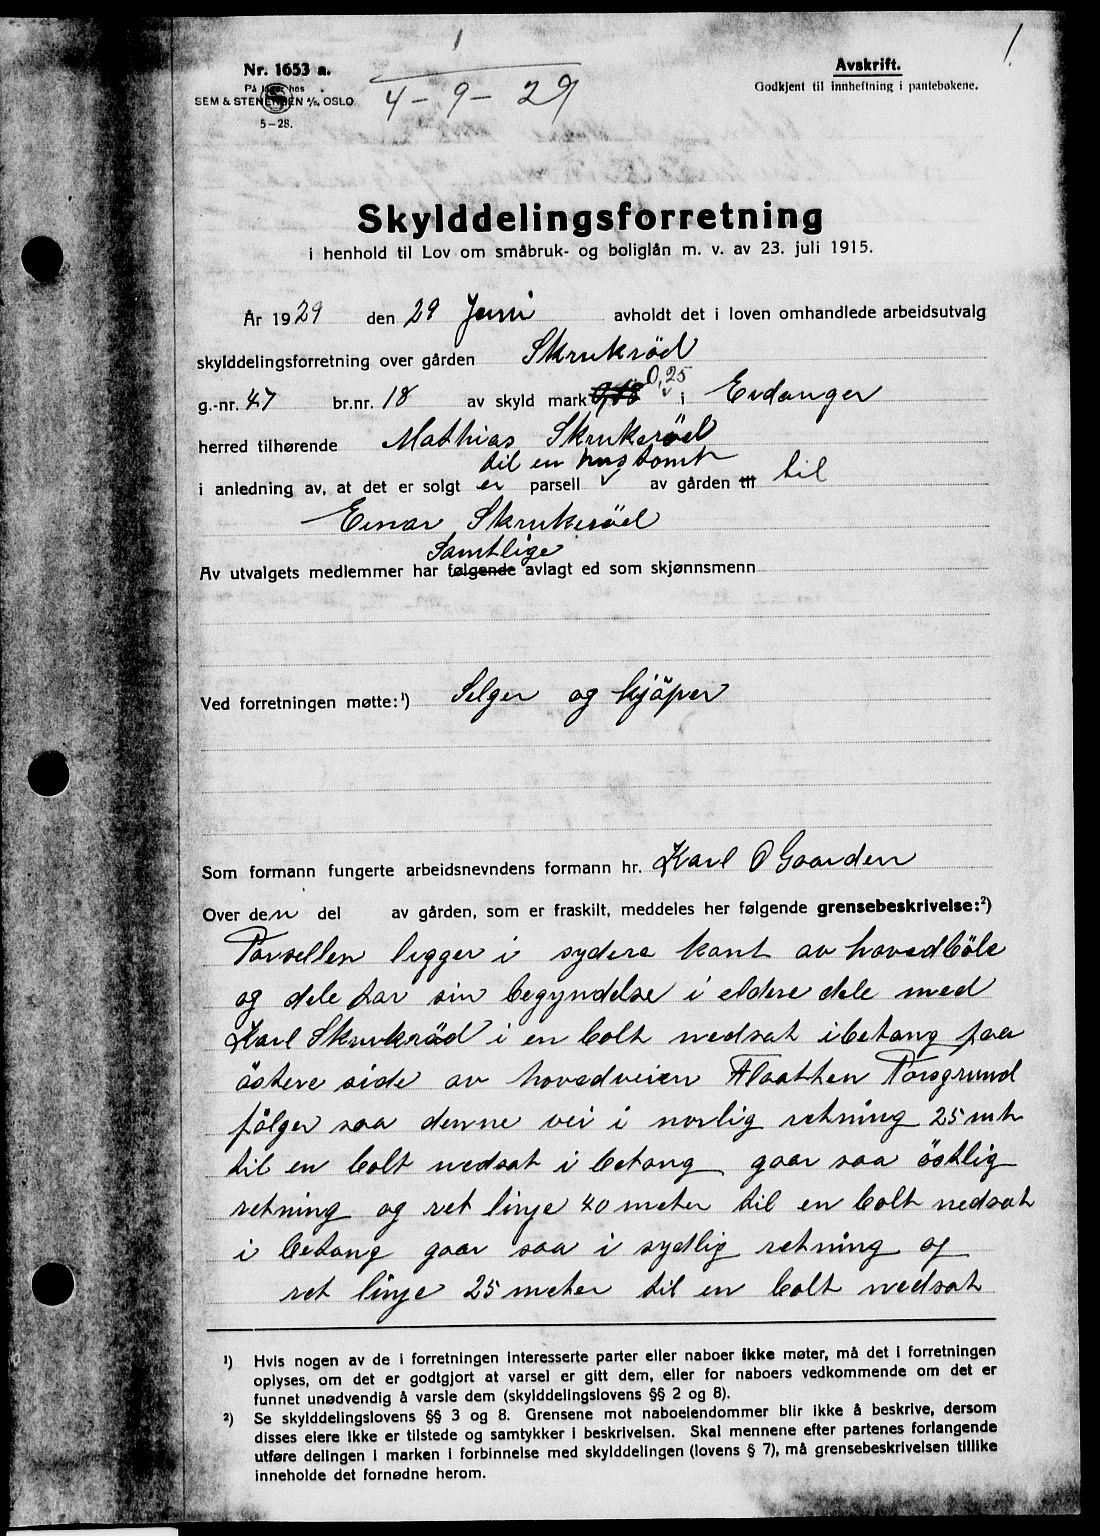 1
1
Nr. 1653 a.
På lager hos
SEM & STENERSEN A/S, OSLO
5-28.
4 - 9 - 29
Avskrift.
Godkjent til innheftning i pantebøkene.
Skylddelingsforretning
i henhold til Lov om småbruk- og boliglån m. v. av 23. juli 1915.
År 1929 den 29 Juni avholdt det i loven omhandlede arbeidsutvalg
skylddelingsforretning over gården Skrukröd
0,25
g.-nr. 47 br.nr. 18 av skyld mark i Eidanger
herred tilhørende Mathias Skrukeröd
til en hustomt
i anledning av, at det er solgt er parsell av gården till til
Einar Skrukeröd
Samtlige
Av utvalgets medlemmer har følgende avlagt ed som skjønnsmenn
Ved forretningen møtte:¹) Selger og kjöper
Som formann fungerte arbeidsnevndens formann hr. Karl O Gaarden
Over den del av gården, som er fraskilt, meddeles her følgende grensebeskrivelse:²)
Parsellen ligger i sydere kant av hovedböle
og dele tar sin begyndelse i eldere dele med
Karl Skrukröd i en bolt nedsat i betang paa
östere side av hovedveien Flaatten Porsgrund
fölger saa denne vei i norlig retning 25 mt
til en bolt nedsat i betong gaar saa östlig
retning og ret linje 40 meter til en bolt nedsat
i betong gaar saa i sydlig retning og
ret linje 25 meter til en bolt nedsat
¹) Hvis nogen av de i forretningen interesserte parter eller naboer ikke møter, må det i forretningen
oplyses, om det er godtgjort at varsel er gitt dem, eller for naboers vedkommende om det er
funnet unødvendig å varsle dem (skylddelingslovens §§ 2 og 8).
²) Se skylddelingslovens §§ 3 og 8. Grensene mot naboeiendommer blir ikke å beskrive, dersom
disses eiere ikke er tilstede og samtykker i beskrivelsen. Skal mennene efter partenes forlangende
utføre delingen i marken i forbinnelse med skylddelingen (lovens § 7), må grensebeskrivelsen tillike
inneholde det fornødne herom.